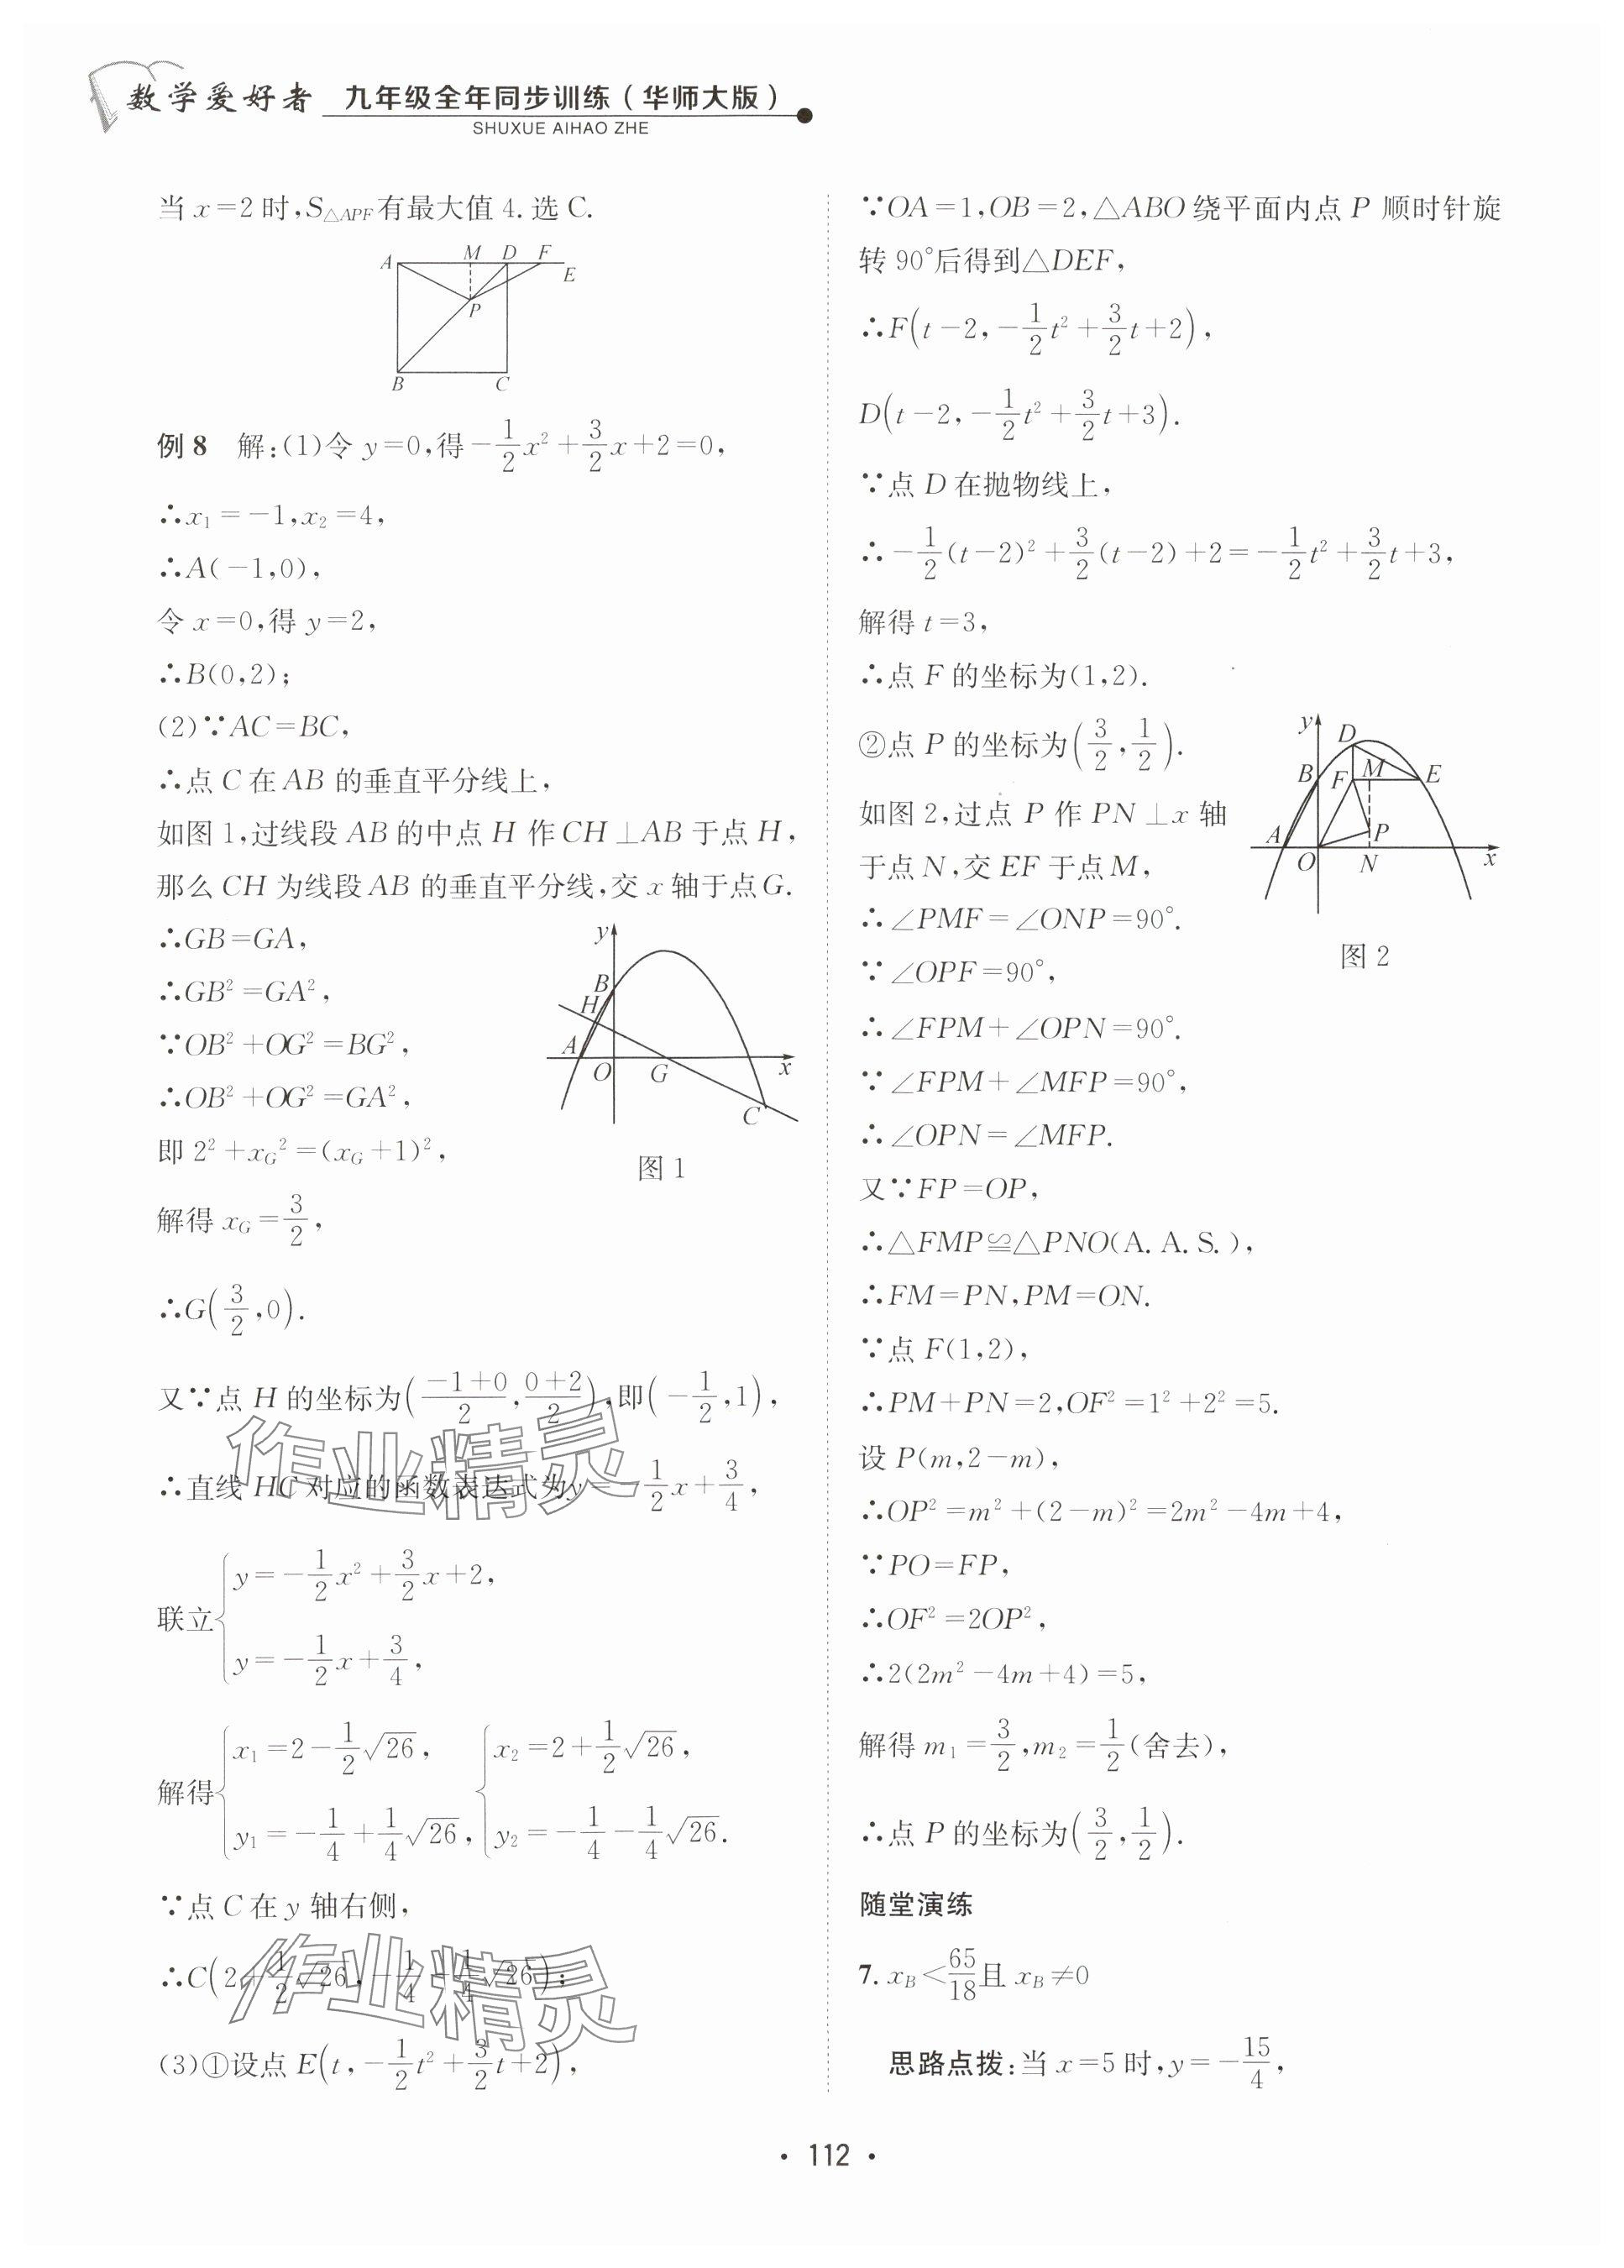 数学爱好者 九年级全年同步训练(华师大版)
SHUXUE AIHAO ZHE
当 x=2 时,S△APF有最大值 4. 选 C.
A M D F E
P
B C
例 8 解:(1)令 y=0,得-1/2x²+3/2x+2=0,
∴x₁=-1,x₂=4,
∴A(-1,0),
令 x=0,得 y=2,
∴B(0,2);
(2)∵AC=BC,
∴点 C 在 AB 的垂直平分线上,
如图 1,过线段 AB 的中点 H 作 CH⊥AB 于点 H,
那么 CH 为线段 AB 的垂直平分线,交 x 轴于点 G.
∴GB=GA,
∴GB²=GA²,
∵OB²+OG²=BG²,
∴OB²+OG²=GA²,
即 2²+x_G²=(x_G+1)²,
y
B
H
A O G x
C
图 1
解得 x_G=3/2,
∴G(3/2,0).
又∵点 H 的坐标为((-1+0)/2,(0+2)/2),即(-1/2,1),
∴直线 HC 对应的函数表达式为y=-1/2x+3/4,
联立{y=-1/2x²+3/2x+2,
y=-1/2x+3/4,
解得{x₁=2-1/2√26, {x₂=2+1/2√26,
y₁=-1/4+1/4√26, y₂=-1/4-1/4√26.
∵点 C 在 y 轴右侧,
∴C(2+1/2√26,-1/4-1/4√26);
(3)①设点 E(t,-1/2t²+3/2t+2),
∵OA=1,OB=2,△ABO 绕平面内点 P 顺时针旋
转 90°后得到△DEF,
∴F(t-2,-1/2t²+3/2t+2),
D(t-2,-1/2t²+3/2t+3).
∵点 D 在抛物线上,
∴-1/2(t-2)²+3/2(t-2)+2=-1/2t²+3/2t+3,
解得 t=3,
∴点 F 的坐标为(1,2).
②点 P 的坐标为(3/2,1/2).
如图 2,过点 P 作 PN⊥x 轴
于点 N,交 EF 于点 M,
∴∠PMF=∠ONP=90°.
∵∠OPF=90°,
y
D
B F M E
A P
O N x
图 2
∴∠FPM+∠OPN=90°.
∵∠FPM+∠MFP=90°,
∴∠OPN=∠MFP.
又∵FP=OP,
∴△FMP≌△PNO(A. A. S. ),
∴FM=PN,PM=ON.
∵点 F(1,2),
∴PM+PN=2,OF²=1²+2²=5.
设 P(m,2-m),
∴OP²=m²+(2-m)²=2m²-4m+4,
∵PO=FP,
∴OF²=2OP²,
∴2(2m²-4m+4)=5,
解得 m₁=3/2,m₂=1/2(舍去),
∴点 P 的坐标为(3/2,1/2).
随堂演练
7. x_B<65/18且 x_B≠0
思路点拨:当 x=5 时,y=-15/4,
作业精灵
作业精灵
· 112 ·